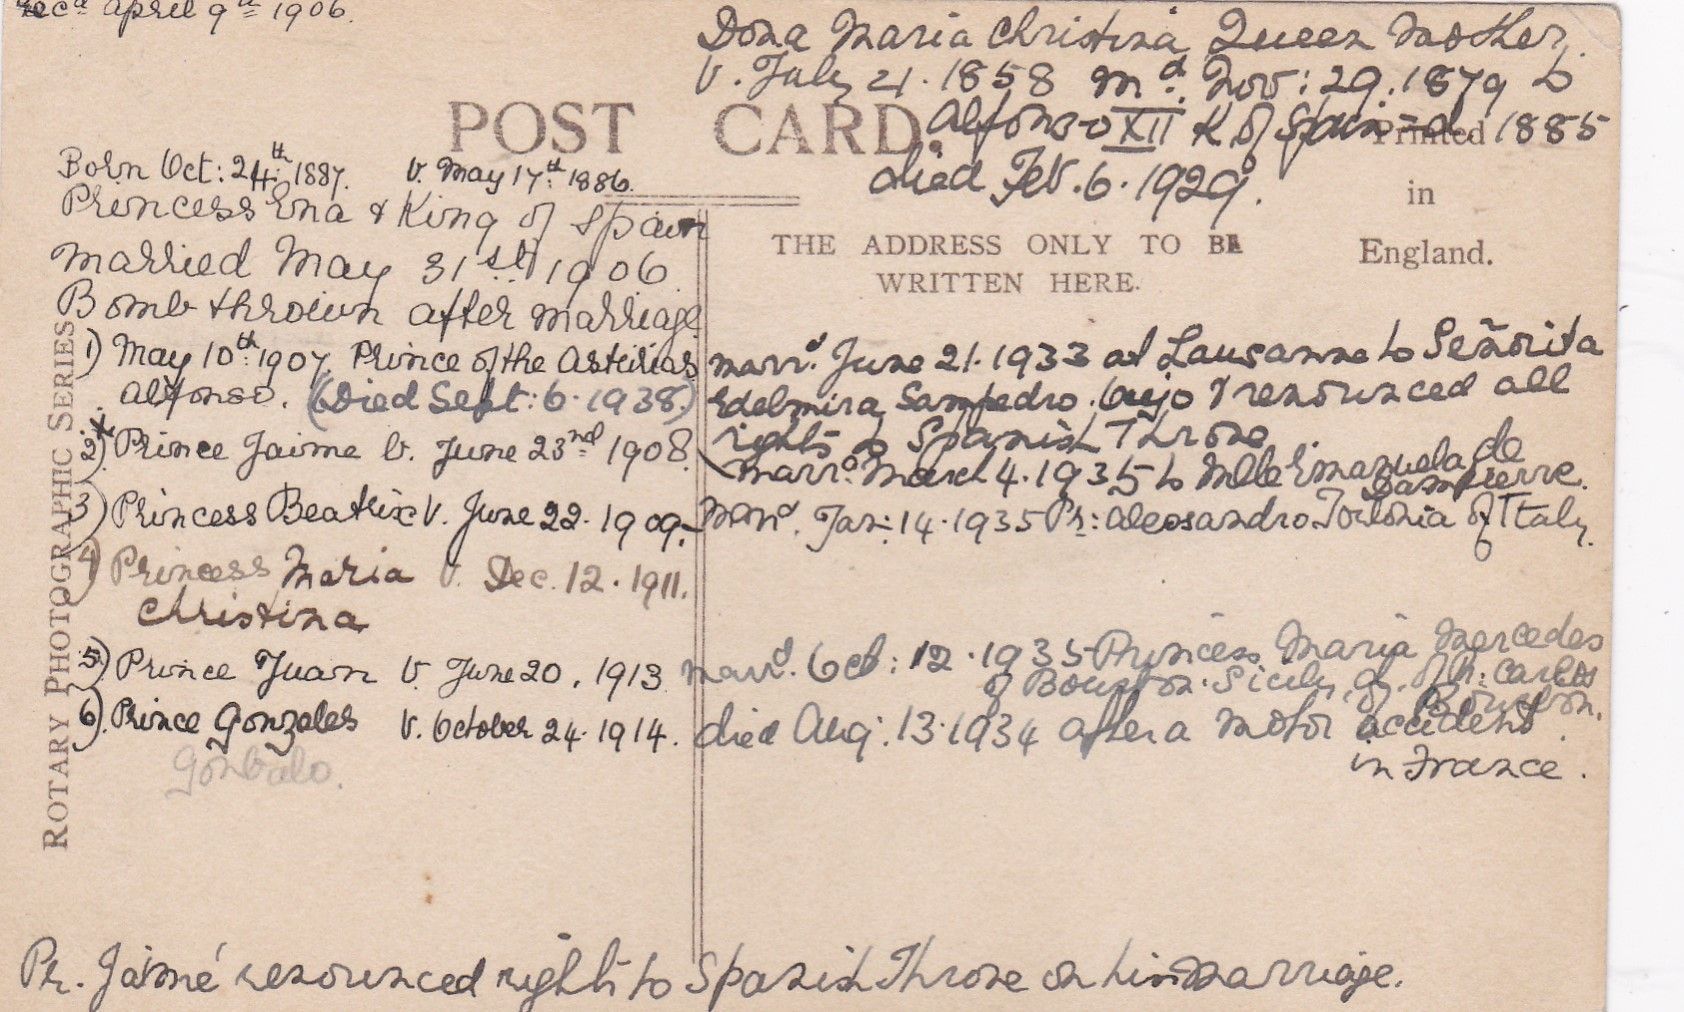 Rec.d April 9th 1906.
Dona Maria Christina Queen Mother.
b. July 21. 1858 md. Nov: 29. 1879 to
Alfonso XII K of Spain d. 1885
died Feb. 6. 1929.
POST CARD
Printed
in
England.
THE ADDRESS ONLY TO BE
WRITTEN HERE.
ROTARY PHOTOGRAPHIC SERIES
Born Oct: 24th 1887. b. May 17th 1886.
Princess Ena & King of Spain
married May 31st 1906
Bomb thrown after marriage
1) May 10th 1907. Prince of the Asturias
Alfonso. (Died Sept: 6. 1938.)
marrd. June 21. 1933 at Lausanne to Señorita
Edelmira Sampedro & renounced all
rights to Spanish Throne
2) Prince Jaime b. June 23nd 1908.
marrd. March 4. 1935 to Mlle Emanuela de
Dampierre.
3) Princess Beatrix b. June 22. 1909.
marrd. Jan: 14. 1935 Pr: Alessandro Torlonia of Italy.
4) Princess Maria b. Dec. 12. 1911.
Christina
5) Prince Juan b. June 20. 1913
marrd. Oct: 12. 1935 Princess Maria Mercedes
of Bourbon-Sicily, d. of Pr: Carlos
of Bourbon.
6) Prince Gonzales b. October 24. 1914.
Gonzalo.
died Aug: 13. 1934 after a motor accident
in France.
Pr. Jaimé renounced rights to Spanish Throne on his marriage.